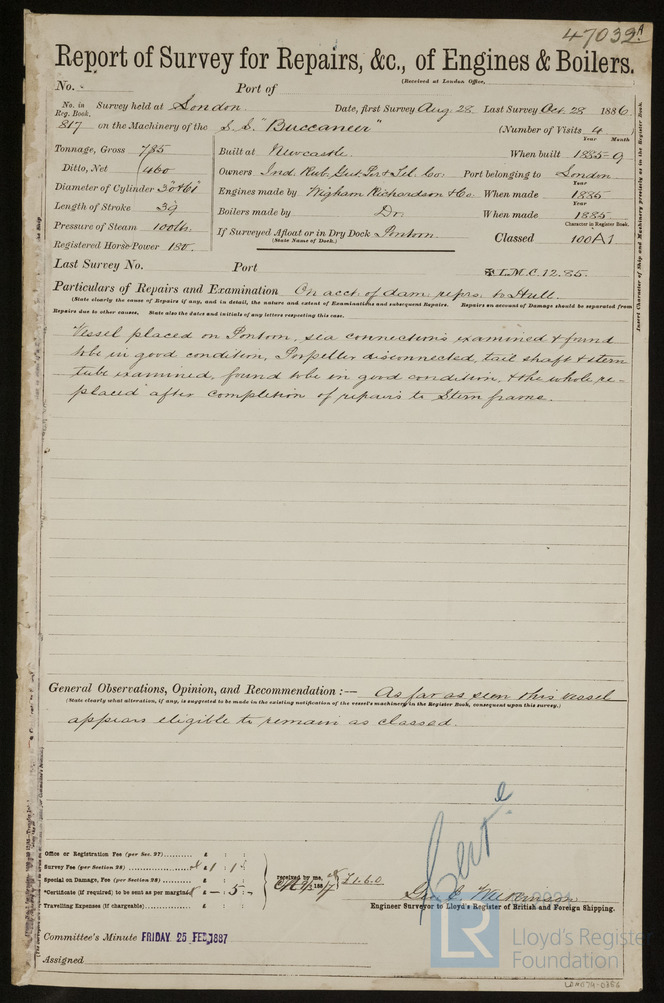 47032A
Report of Survey for Repairs, &c., of Engines & Boilers.
(Received at London Office,
No. Port of
No. in Reg. Book. Survey held at London Date, first Survey Aug. 28 Last Survey Oct. 28 1886
817 on the Machinery of the S.S. "Buccaneer" (Number of Visits 4
Year Month
Tonnage, Gross 785 Built at Newcastle When built 1885-9
Ditto, Net 460 Owners Ind. Rub, Gut. Per & Tel. Co. Port belonging to London
Diameter of Cylinder 30" & 61" Engines made by Wigham Richardson & Co. When made 1885
Year
Length of Stroke 39 Boilers made by Do. When made 1885
Year
Pressure of Steam 100 lbs. If Surveyed Afloat or in Dry Dock Pontoon Classed 100A1
(State Name of Dock.)
Character in Register Book.
Registered Horse-Power 180.
Last Survey No. Port ✠ L.M.C. 12.85.
Particulars of Repairs and Examination On acct. of dam. reprs. to Hull.
(State clearly the cause of Repairs if any, and in detail, the nature and extent of Examinations and subsequent Repairs. Repairs on account of Damage should be separated from
Repairs due to other causes. State also the dates and initials of any letters respecting this case.
Vessel placed on Pontoon, sea connections examined & found
to be in good condition, Propeller disconnected, tail shaft & stern
tube examined, found to be in good condition, & the whole re-
placed after completion of repairs to Stern frame.
Insert Character of Ship and Machinery precisely as in the Register Book.
General Observations, Opinion, and Recommendation :— As far as seen this vessel
(State clearly what alteration, if any, is suggested to be made in the existing notification of the vessel's machinery in the Register Book, consequent upon this survey.)
appears eligible to remain as classed.
Office or Registration Fee (per Sec. 27) £ : :
Survey Fee (per Section 28) £ 1 : 1 :
Special on Damage, Fee (per Section 28) £ : :
*Certificate (if required) to be sent as per margin £ — : 5 :
Travelling Expenses (if chargeable) £ : :
received by me, £1.6.0
188
Cert
Geo. C. Wilkinson
Engineer Surveyor to Lloyd's Register of British and Foreign Shipping.
Committee's Minute FRIDAY 25 FEB 1887
Assigned
LR
Lloyd's Register
Foundation